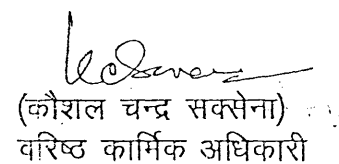 (कौशल चन्द्र सक्सेना)
वरिष्ठ कार्मिक अधिकारी